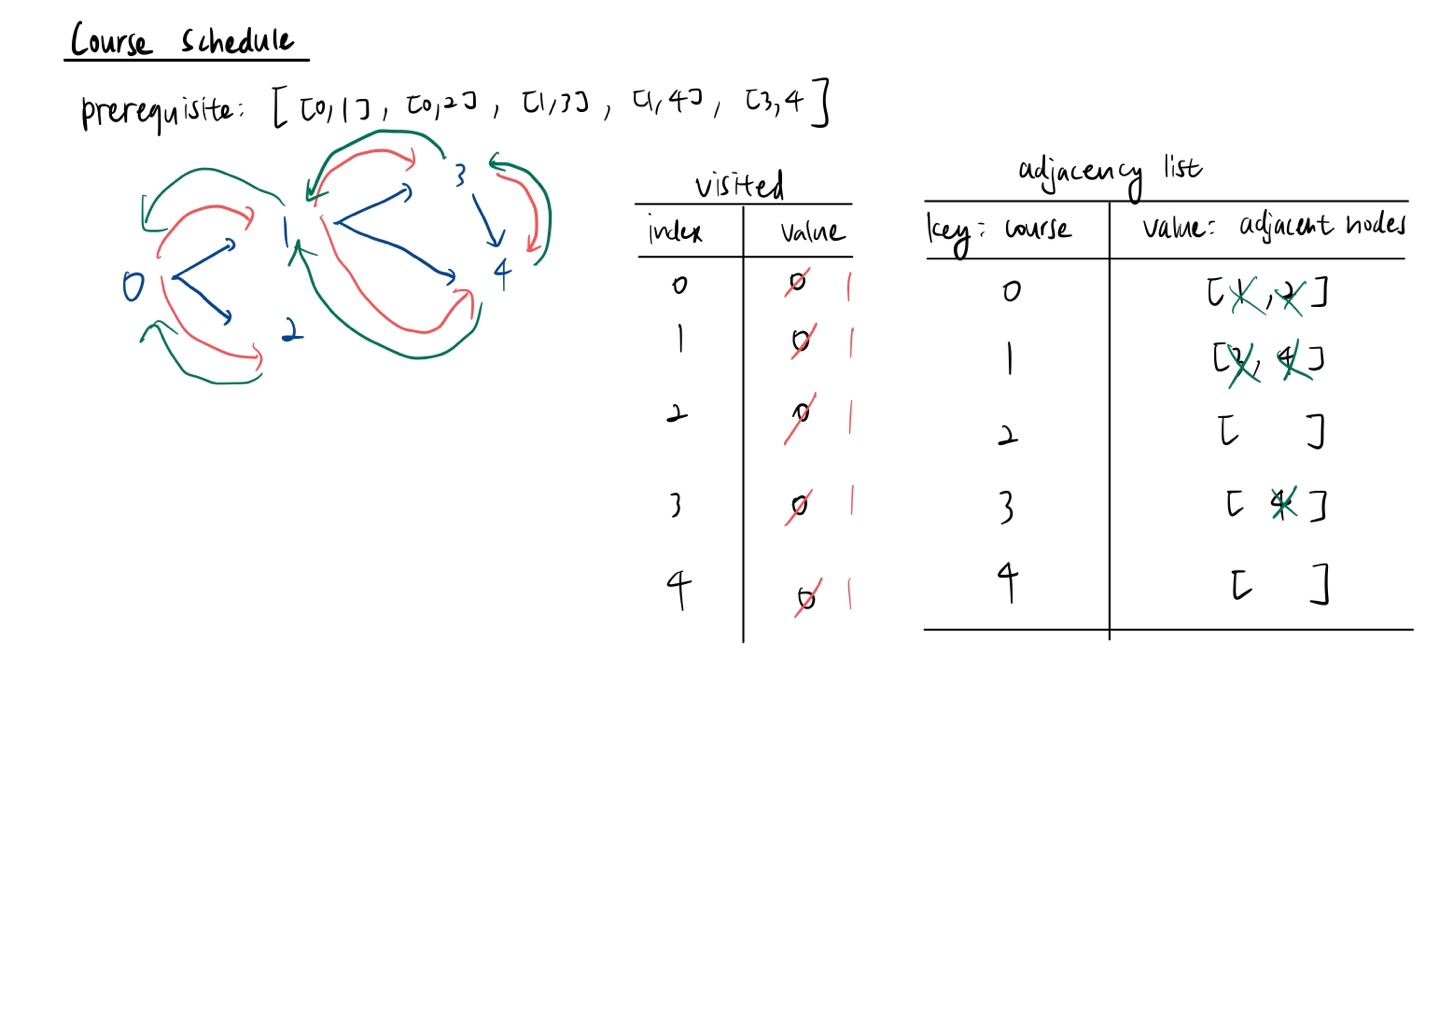 Course Schedule
prerequisite: [[0,1], [0,2], [1,3], [1,4], [3,4]
3
1
4
0
2
visited
index value
0 0 1
1 0 1
2 0 1
3 0 1
4 0 1
adjacency list
key: course value: adjacent nodes
0 [1,2]
1 [3,4]
2 [ ]
3 [4]
4 [ ]